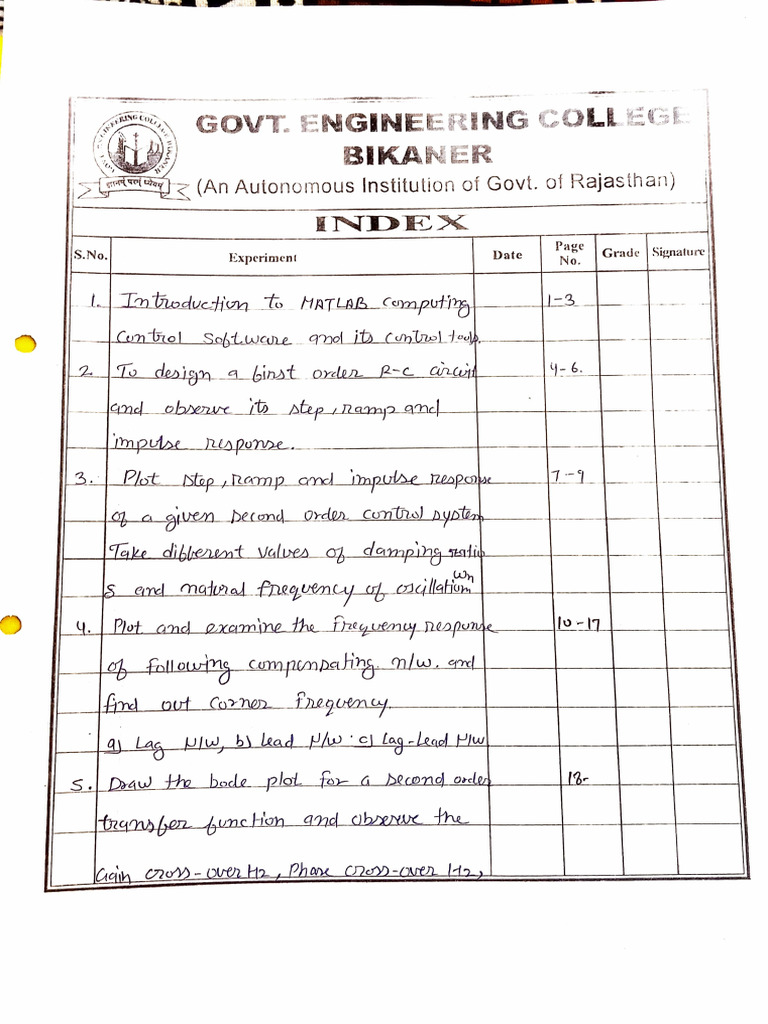 GOVT. ENGINEERING COLLEGE
BIKANER
(An Autonomous Institution of Govt. of Rajasthan)
ज्ञानम् परम् ध्येयम्
INDEX
S.No. Experiment Date Page No. Grade Signature
1. Introduction to MATLAB computing 1-3
control software and its control tools.
2. To design a first order R-C circuit 4-6.
and observe its step, ramp and
impulse response.
3. Plot step, ramp and impulse response 7-9
of a given second order control system
Take different values of damping ratio
S and natural frequency of oscillation wn
4. Plot and examine the frequency response 10-17
of following compensating n/w. and
find out corner frequency.
a) Lag N/W, b) Lead N/W. c) Lag-Lead N/W
5. Draw the bode plot for a second order 18-
transfer function and observe the
Gain cross-over Hz, Phase cross-over Hz,